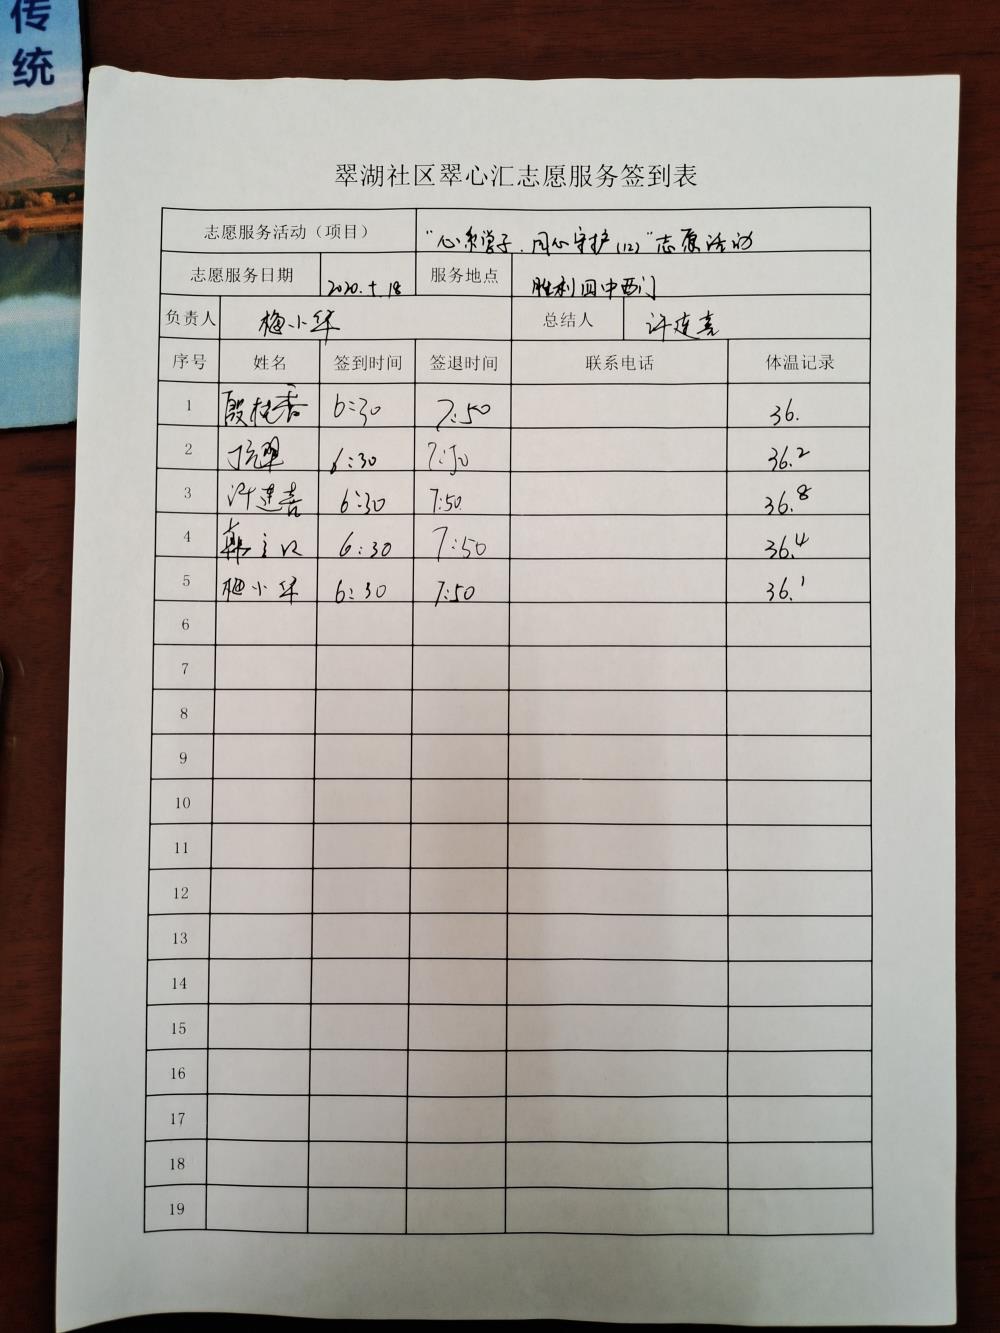 传
统
翠湖社区翠心汇志愿服务签到表
志愿服务活动（项目） “心系学子，同心守护(12)”志愿活动
志愿服务日期 2020.5.18 服务地点 胜利四中西门
负责人 梅小华 总结人 许建喜
序号 姓名 签到时间 签退时间 联系电话 体温记录
1 殷桂香 6:30 7:50 36.
2 6:30 7:50 36.2
3 许建喜 6:30 7:50 36.8
4 6:30 7:50 36.4
5 梅小华 6:30 7:50 36.1
6
7
8
9
10
11
12
13
14
15
16
17
18
19